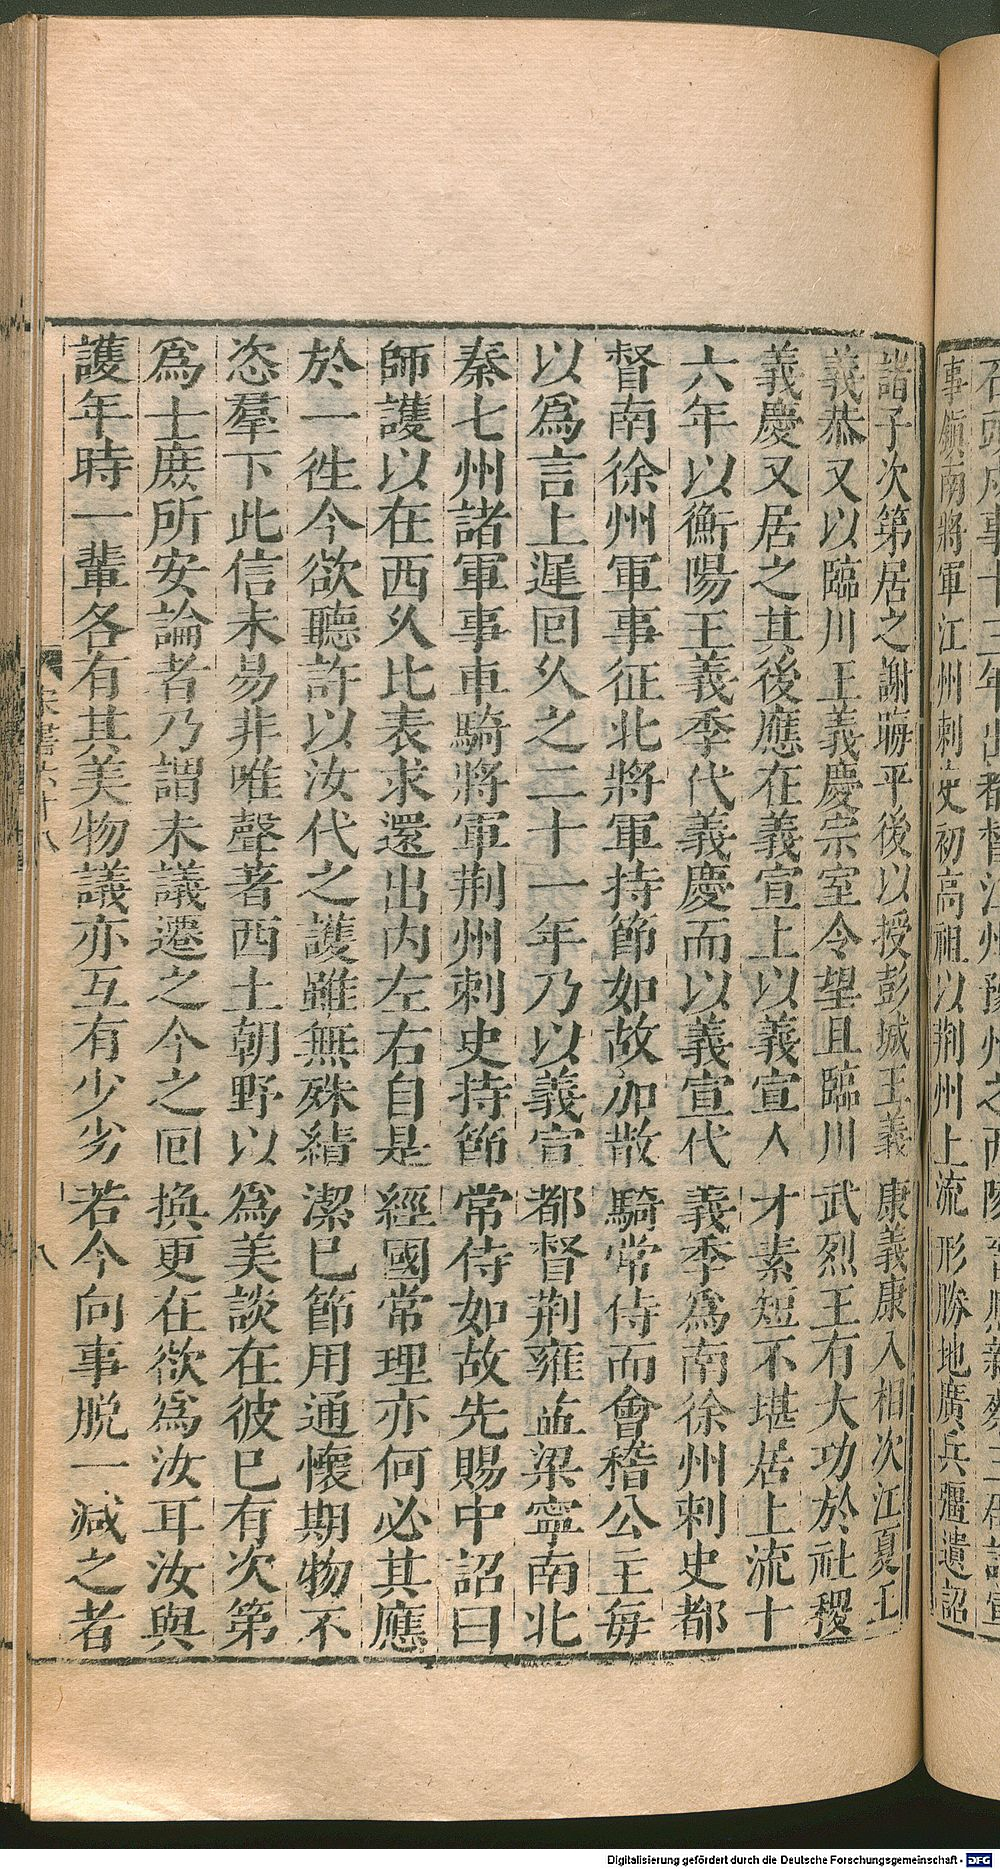 事領南將軍江州刺史初高祖以荆州上流形勝地廣兵彊遺詔
諸子次第居之謝晦平後以授彭城王義康義康入相次江夏王
義恭又以臨川王義慶宗室令望且臨川武烈王有大功於社稷
義慶又居之其後應在義宣上以義宣人才素短不堪居上流十
六年以衡陽王義季代義慶而以義宣代義季爲南徐州刺史都
督南徐州軍事征北將軍持節如故加散騎常侍而會稽公主每
以爲言上遲回久之二十一年乃以義宣都督荆雍益梁寧南北
秦七州諸軍事車騎將軍荆州刺史持節常侍如故先賜中詔曰
師護以在西久比表求還出内左右自是經國常理亦何必其應
於一徃今欲聽許以汝代之護雖無殊績潔巳節用通懷期物不
恣羣下此信未易非唯聲著西土朝野以爲美談在彼巳有次第
爲士庶所安論者乃謂未議遷之今之回換更在欲爲汝耳汝與
護年時一輩各有其美物議亦互有少劣若今向事脱一減之者
宋書六十八
八
Digitalisierung gefördert durch die Deutsche Forschungsgemeinschaft - DFG